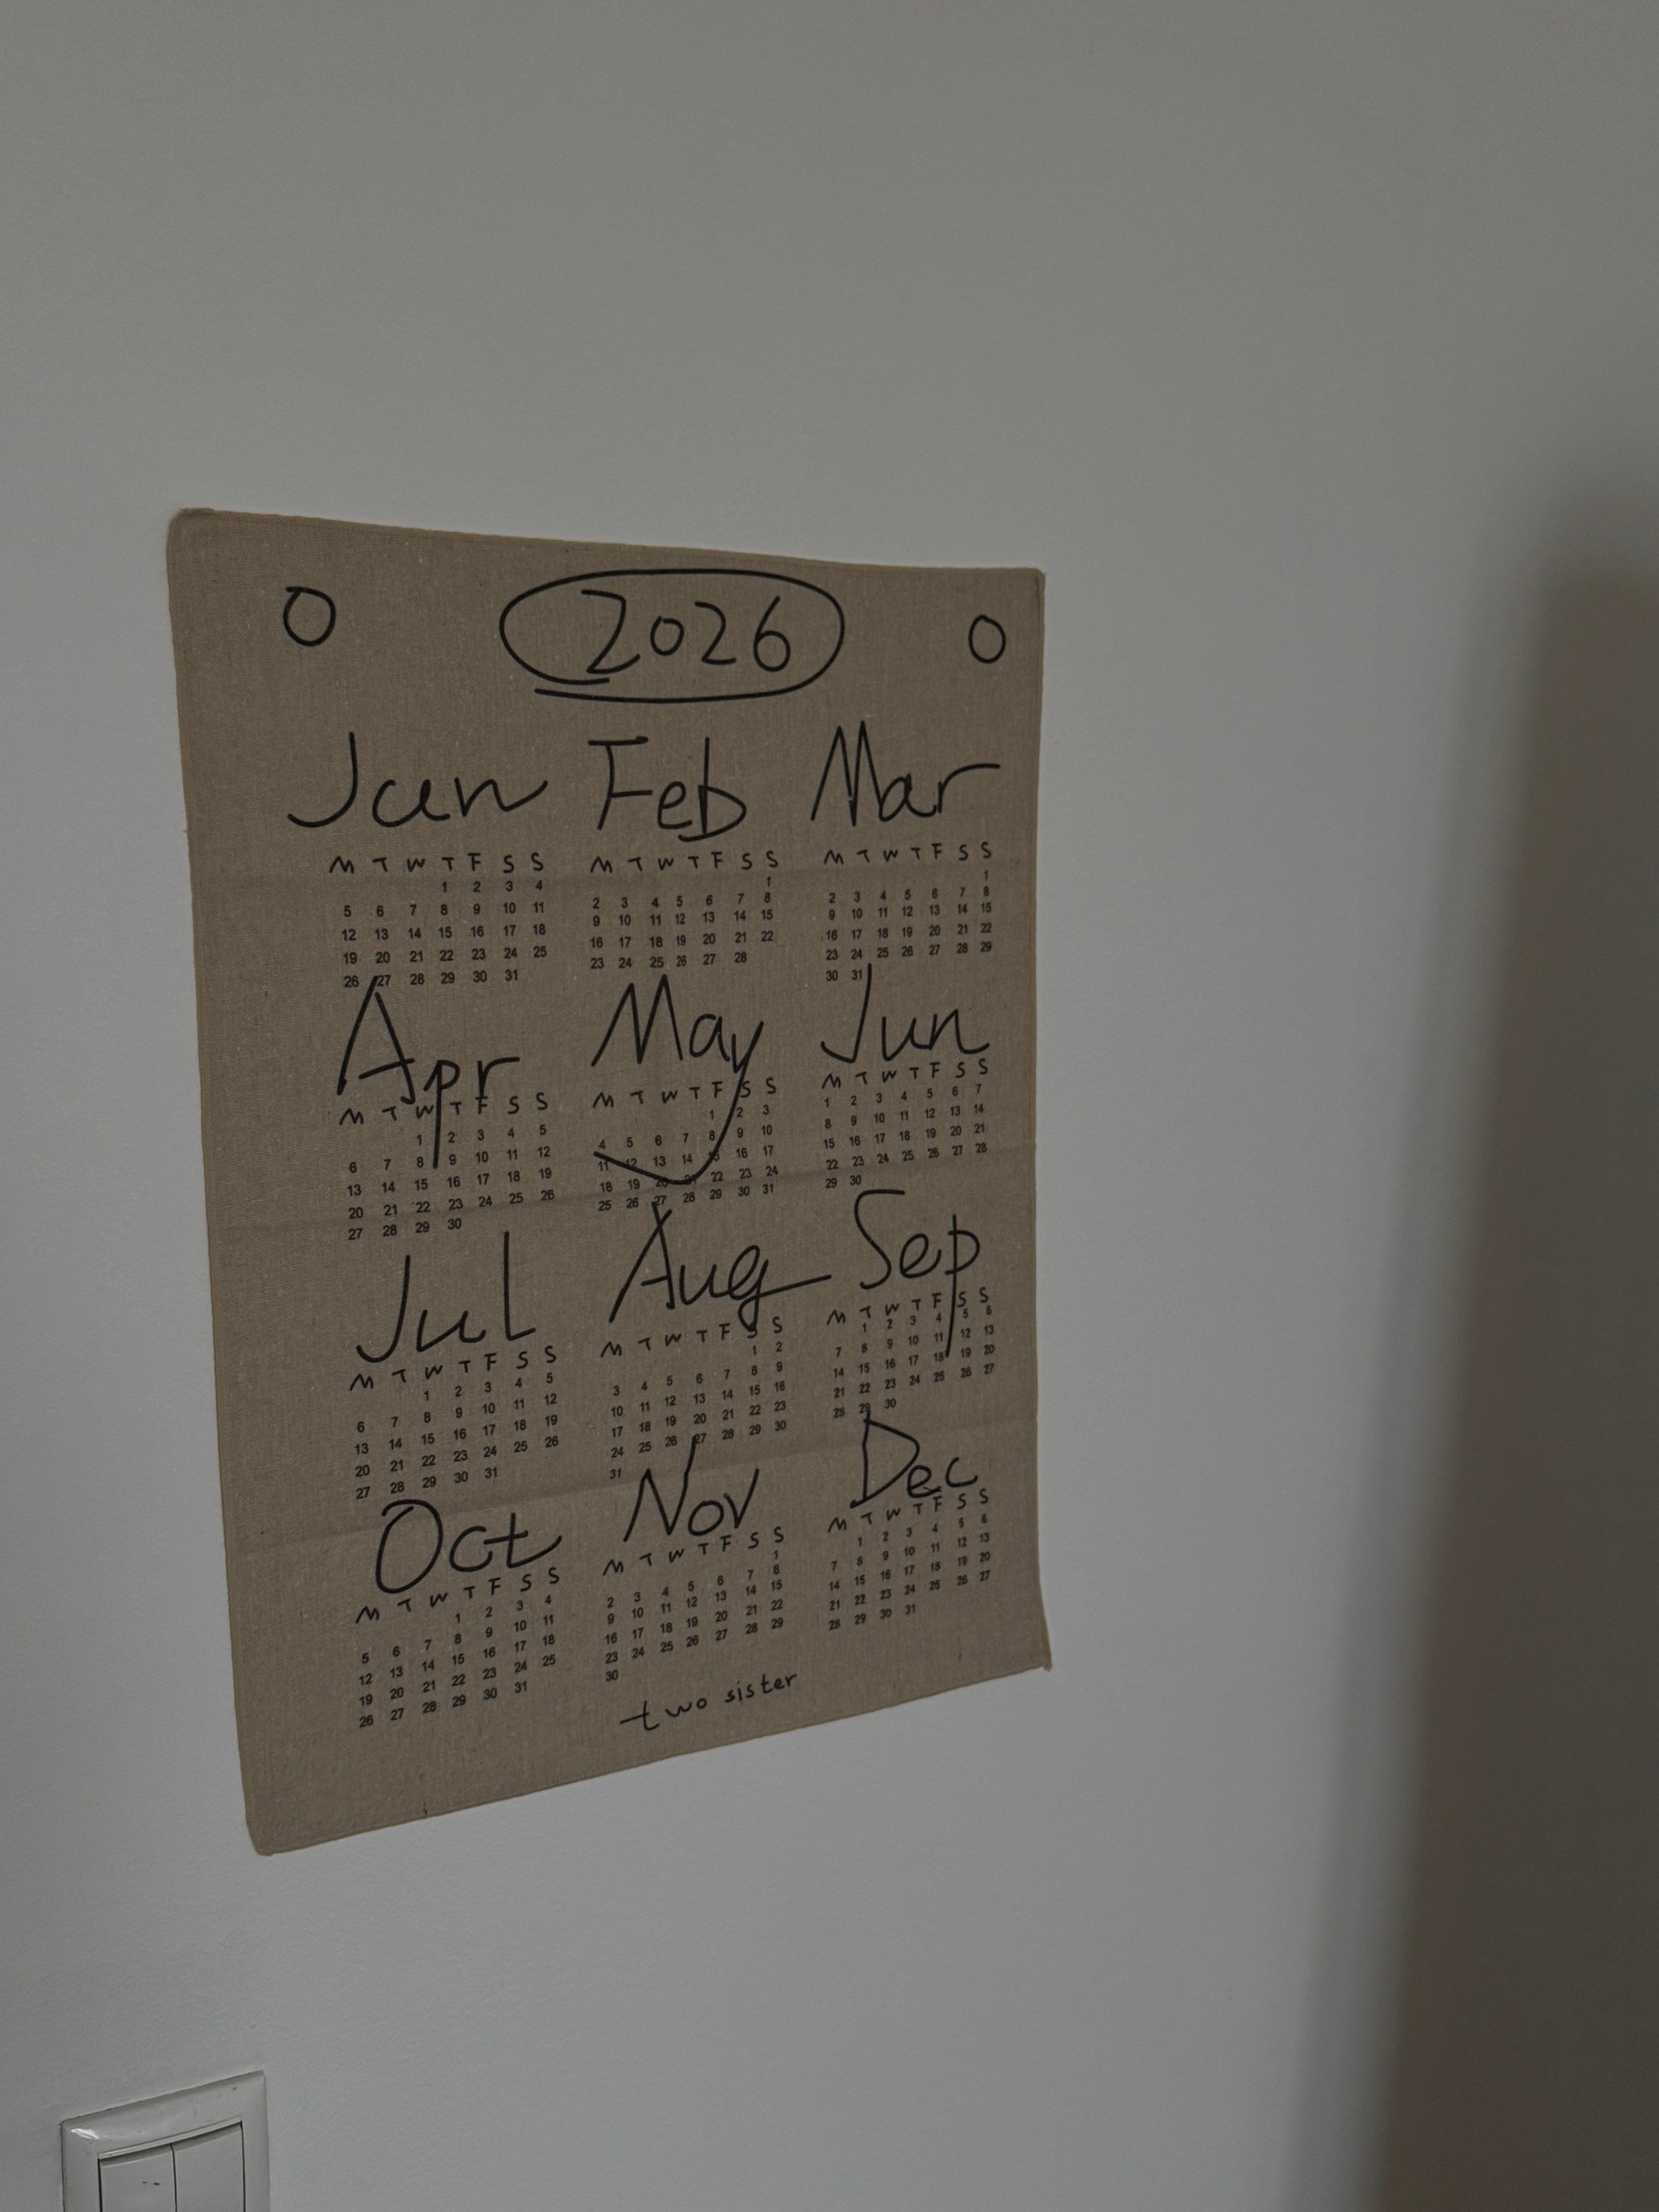 O 2026 O
Jan Feb Mar
M T W T F S S M T W T F S S M T W T F S S
1 2 3 4 1 1
5 6 7 8 9 10 11 2 3 4 5 6 7 8 2 3 4 5 6 7 8
12 13 14 15 16 17 18 9 10 11 12 13 14 15 9 10 11 12 13 14 15
19 20 21 22 23 24 25 16 17 18 19 20 21 22 16 17 18 19 20 21 22
26 27 28 29 30 31 23 24 25 26 27 28 23 24 25 26 27 28 29
30 31
Apr May Jun
M T W T F S S M T W T F S S M T W T F S S
1 2 3 4 5 1 2 3 1 2 3 4 5 6 7
6 7 8 9 10 11 12 4 5 6 7 8 9 10 8 9 10 11 12 13 14
13 14 15 16 17 18 19 11 12 13 14 15 16 17 15 16 17 18 19 20 21
20 21 22 23 24 25 26 18 19 20 21 22 23 24 22 23 24 25 26 27 28
27 28 29 30 25 26 27 28 29 30 31 29 30
Jul Aug Sep
M T W T F S S M T W T F S S M T W T F S S
1 2 3 4 5 1 2 1 2 3 4 5 6
6 7 8 9 10 11 12 3 4 5 6 7 8 9 7 8 9 10 11 12 13
13 14 15 16 17 18 19 10 11 12 13 14 15 16 14 15 16 17 18 19 20
20 21 22 23 24 25 26 17 18 19 20 21 22 23 21 22 23 24 25 26 27
27 28 29 30 31 24 25 26 27 28 29 30 28 29 30
31
Oct Nov Dec
M T W T F S S M T W T F S S M T W T F S S
1 2 3 4 1 1 2 3 4 5 6
5 6 7 8 9 10 11 2 3 4 5 6 7 8 7 8 9 10 11 12 13
12 13 14 15 16 17 18 9 10 11 12 13 14 15 14 15 16 17 18 19 20
19 20 21 22 23 24 25 16 17 18 19 20 21 22 21 22 23 24 25 26 27
26 27 28 29 30 31 23 24 25 26 27 28 29 28 29 30 31
30
two sister